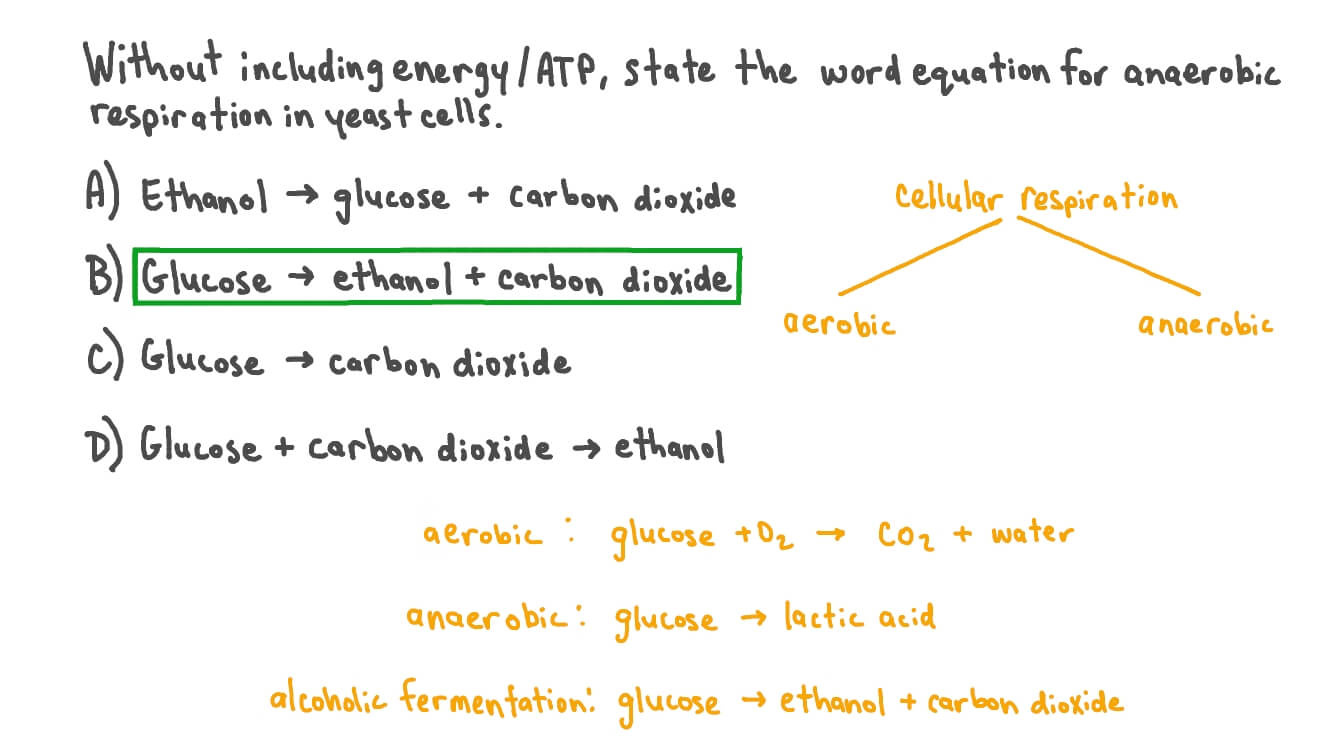 Without including energy/ATP, state the word equation for anaerobic
respiration in yeast cells.
A) Ethanol → glucose + carbon dioxide
cellular respiration
B) Glucose → ethanol + carbon dioxide
aerobic
anaerobic
C) Glucose → carbon dioxide
D) Glucose + carbon dioxide → ethanol
aerobic : glucose + O₂ → CO₂ + water
anaerobic: glucose → lactic acid
alcoholic fermentation: glucose → ethanol + carbon dioxide